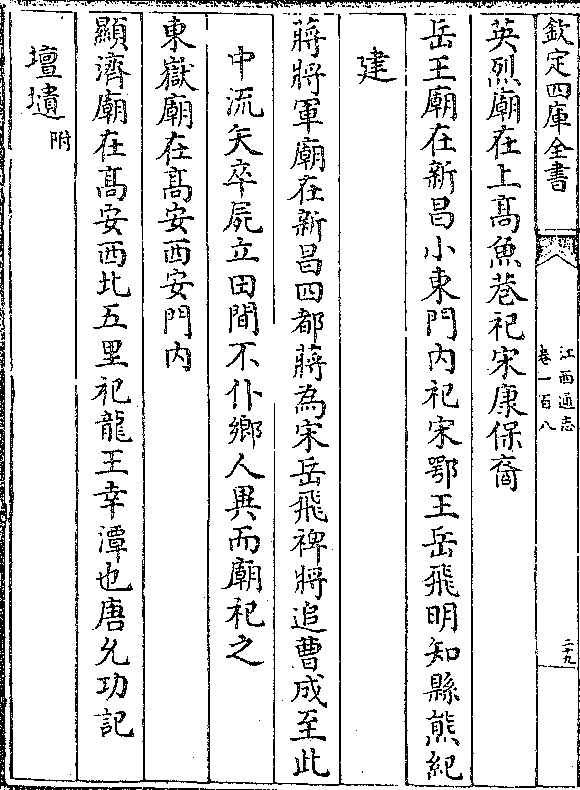 欽定四庫全書
江西通志
卷一百八
二十九
英烈廟在上髙魚巷祀宋康保裔
岳王廟在新昌小東門内祀宋鄂王岳飛明知縣熊紀
建
蔣將軍廟在新昌四都蔣為宋岳飛裨將追曹成至此
中流矢卒屍立田間不仆鄉人異而廟祀之
東嶽廟在髙安西安門内
顯濟廟在髙安西北五里祀龍王幸潭也唐允功記
壇壝附